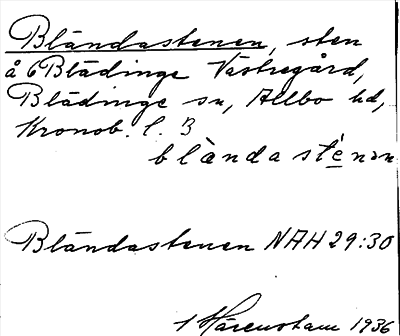 Bländastenen, sten
å 6 Blädinge Västregård,
Blädinge sn, Allbo hd,
Kronob. l. B
blànda sténan
Bländastenen NAH 29:30
1 Härenstam 1936